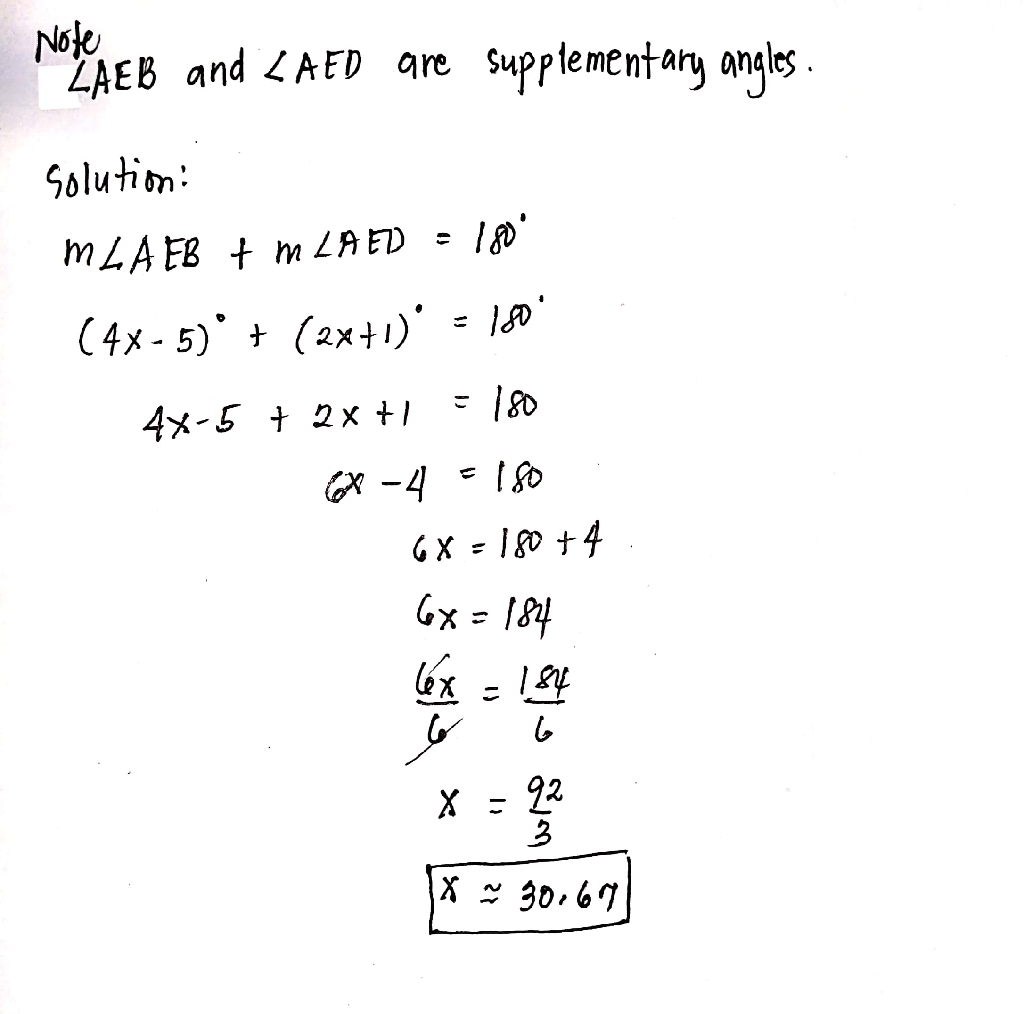 Note
∠AEB and ∠AED are supplementary angles.
Solution:
m∠AEB + m∠AED = 180°
(4x - 5)° + (2x+1)° = 180°
4x-5 + 2x +1 = 180
6x - 4 = 180
6x = 180 + 4
6x = 184
6x/6 = 184/6
x = 92/3
x ≈ 30.67